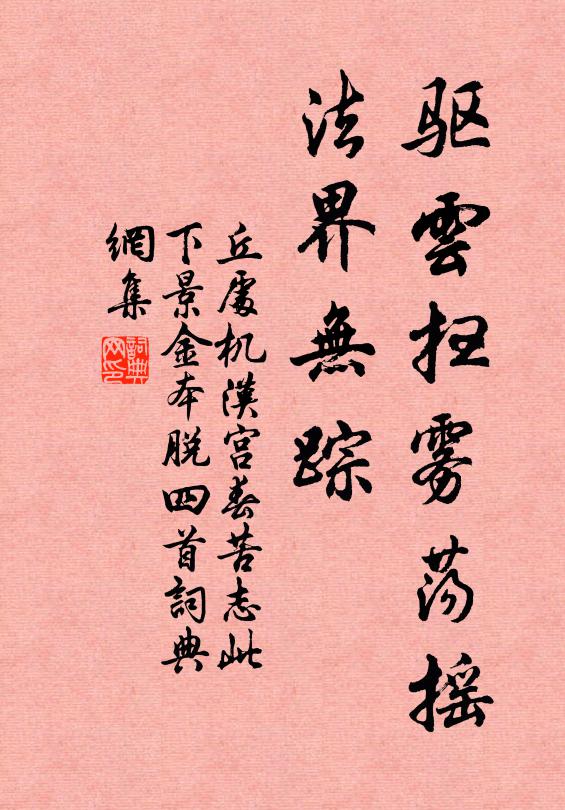 驱雲扫雾荡摇
法界無踪
丘處机漢宫春苦志此
下景金本脱四首詞典
網集
詞典網印